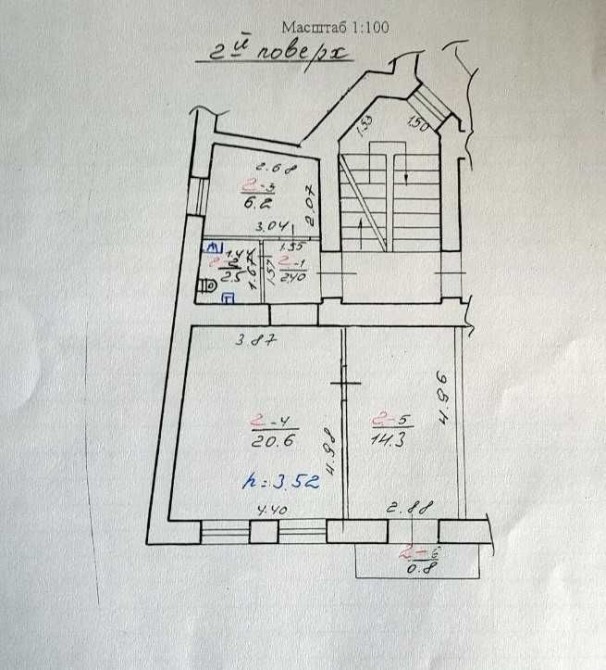 Масштаб 1:100
2й поверх
1.53
1.50
2.68
2-3
6.2
2.07
3.04
1.55
2-1
2.40
1.57
1.67
2.5
3.87
2-4
20.6
4.98
h=3.52
4.40
2-5
14.3
4.96
2.88
2-6
0.8